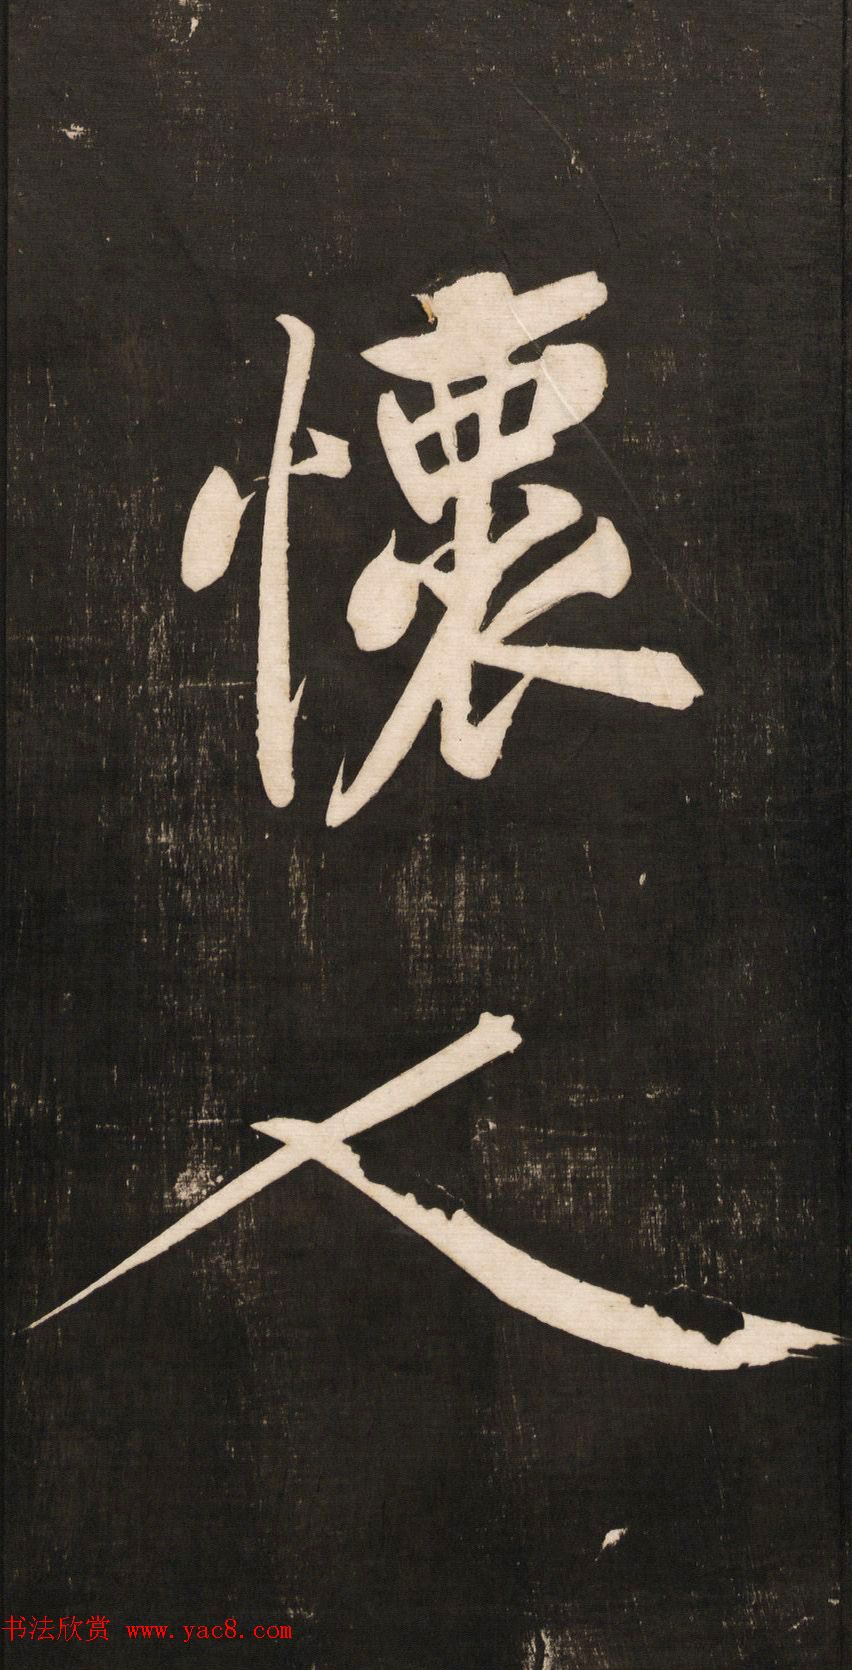 懷人
书法欣赏 www.yac8.com